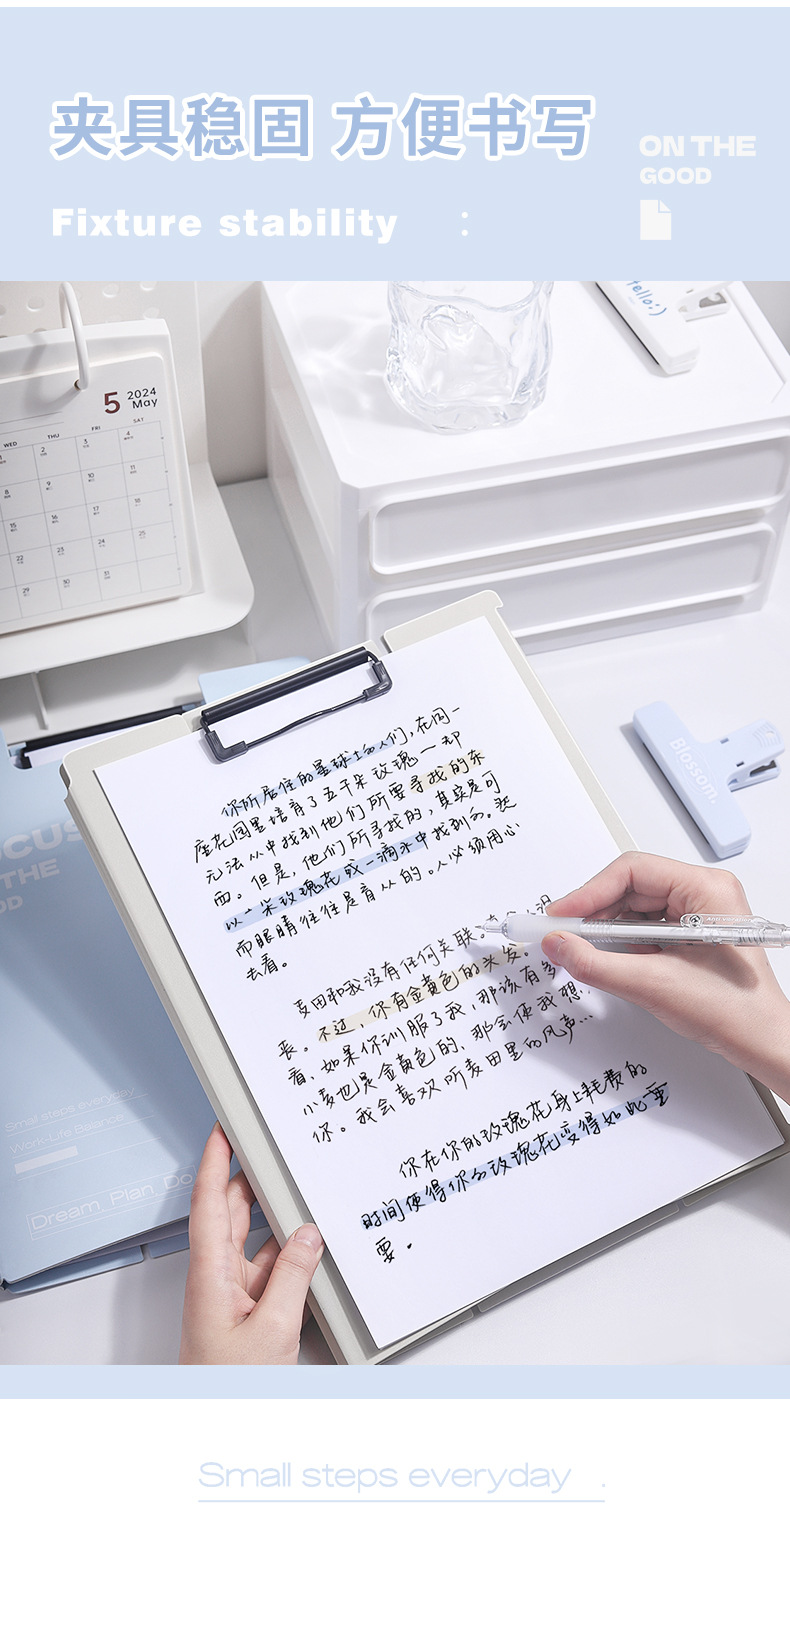 夹具稳固 方便书写
Fixture stability :
ON THE
GOOD
hello:)
5 2024
May
WED THU FRI SAT
1 2 3 4
8 9 10 11
15 16 17 18
22 23 24 25
29 30 31
你所居住的星球上的人们,在同一
座花园里培育了五千朵玫瑰——却
无法从中找到他们所要寻找的东
西。但是,他们所寻找的,其实是可
以从一朵玫瑰花或一滴水中找到的。然
而眼睛往往是盲从的。人必须用心
去看。
麦田和我没有任何关联。
丧。不过,你有金黄色的头发。
看,如果你训服了我,那该有多
小麦也是金黄色的,那会使我想
你。我会喜欢听麦田里的风声...
你在你的玫瑰花身上耗费的
时间使得你的玫瑰花变得如此重
要。
Blossom.
OCUS
THE
OD
Small steps everyday
Work-Life Balance
Dream Plan Do
Small steps everyday .